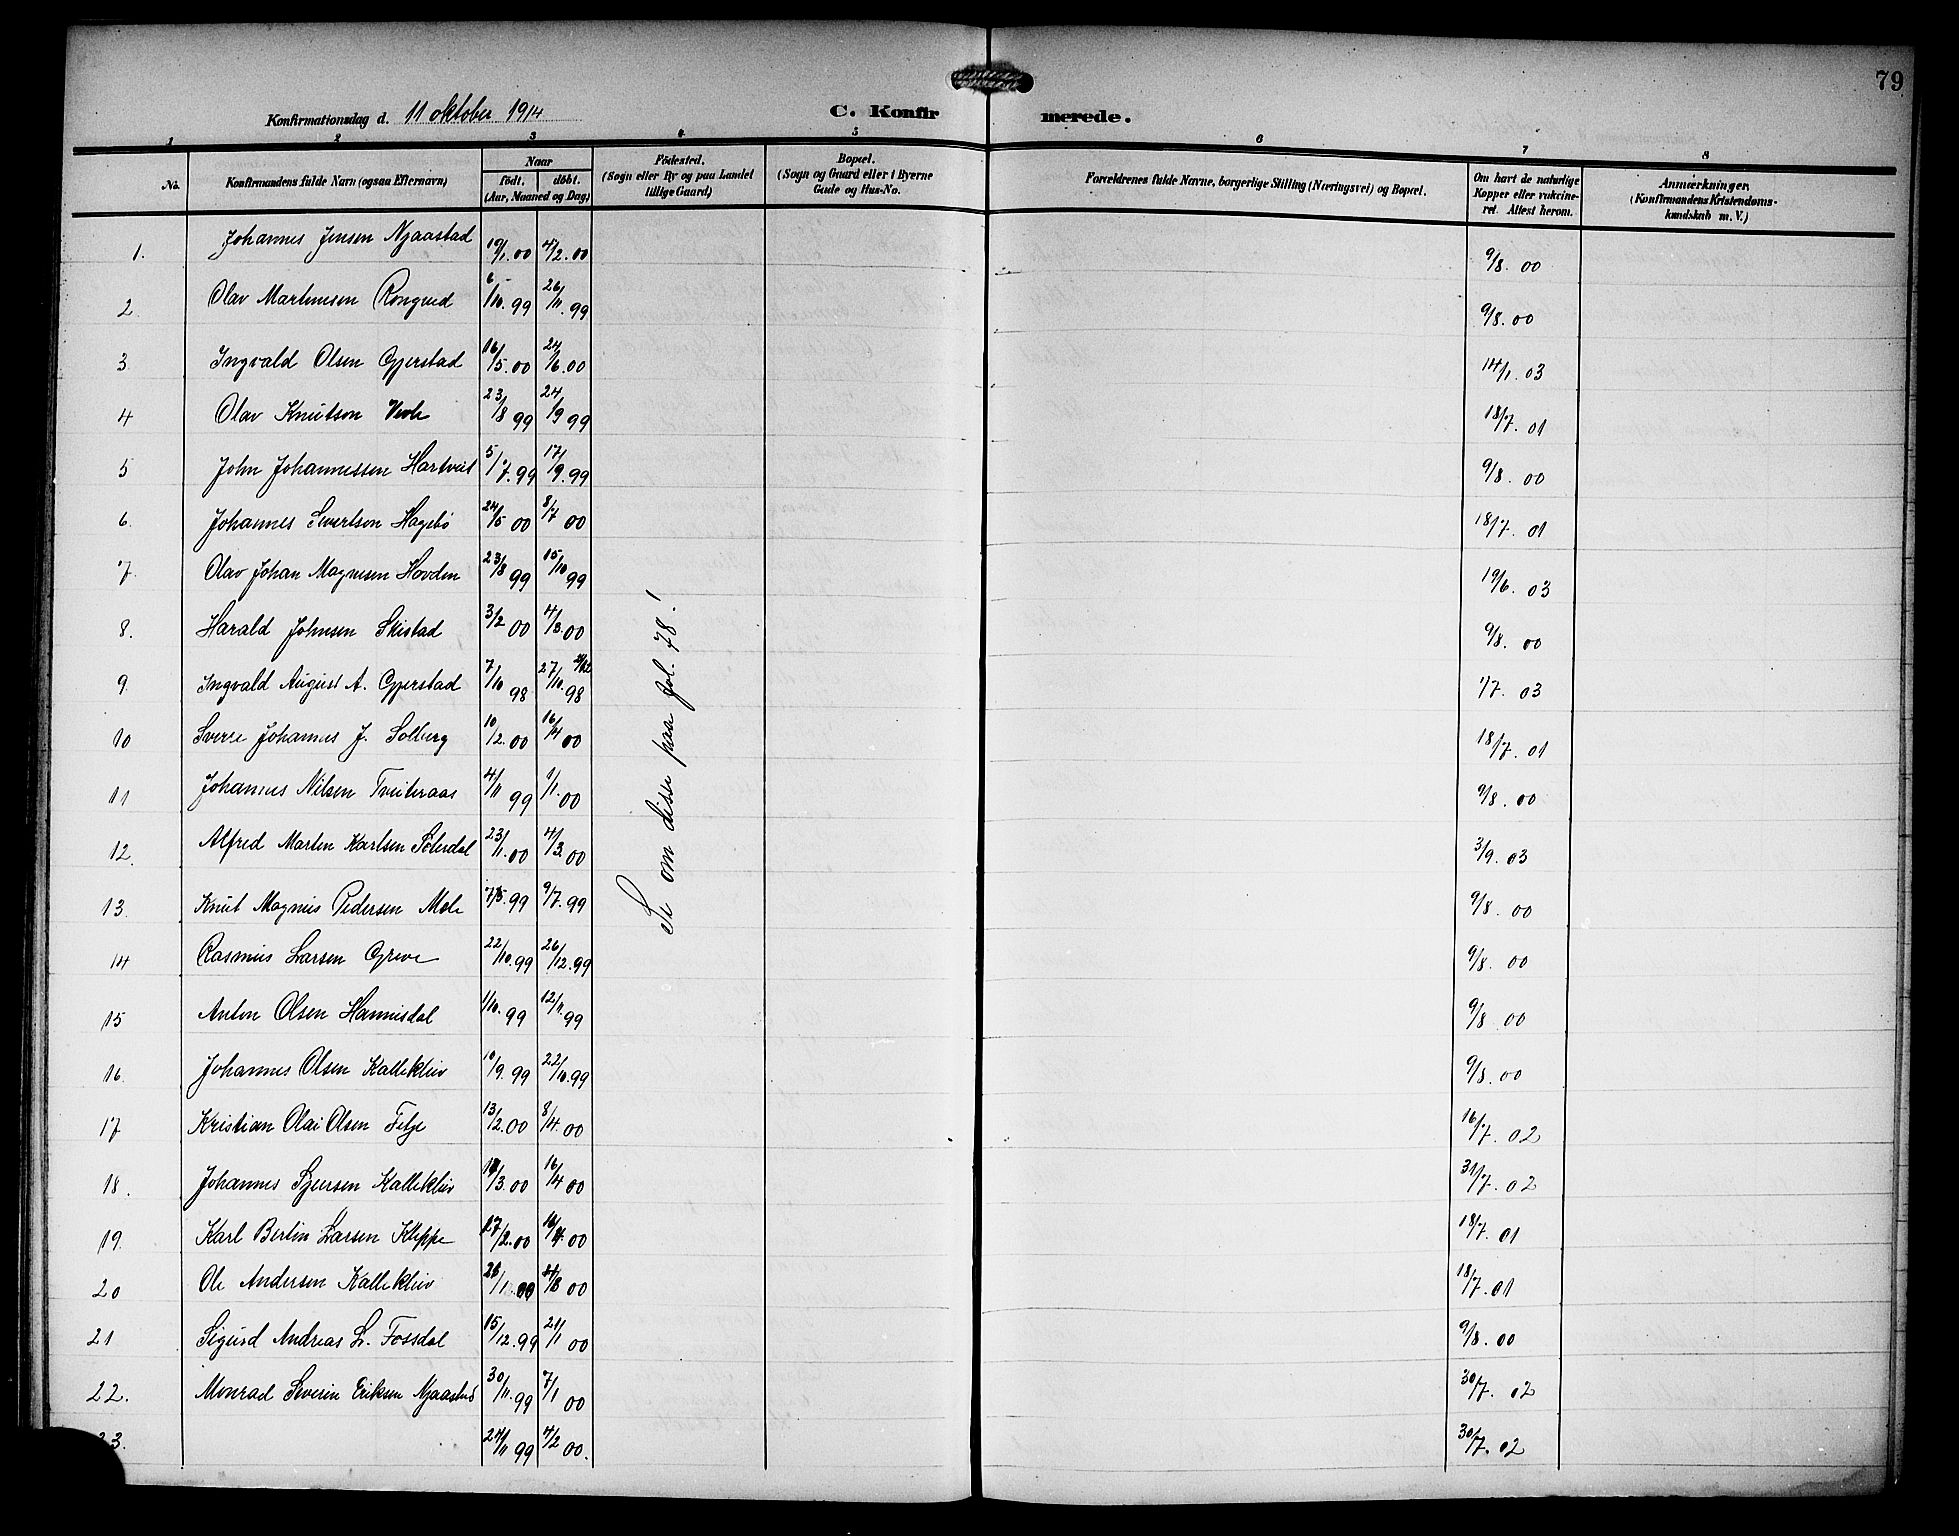 79
Konfirmationsdag d. 11 oktober 1914 C. Konfir merede.
1 2 3 4 5 6 7 8
No. Konfirmandens fulde Navn (ogsaa Efternavn) Naar Födested. Bopæl. Forældrenes fulde Navne, borgerlige Stilling (Næringsvei) og Bopæl. Om havt de naturlige Anmærkninger
födt. döbt. (Sogn eller By og paa Landet (Sogn og Gaard eller i Byerne Kopper eller vakcine- (Konfirmandens Kristendoms-
(Aar, Maaned og Dag) tillige Gaard) Gade og Hus-No. ret. Attest herom. kundskab m. V.)
1. Johannes Jensen Njaastad 19/1.00 4/2.00 9/8.00
2. Olav Martinusen Rongved 6/10.99 26/11.99 9/8.00
3. Ingvald Olsen Gjerstad 16/5.00 24/6.00 14/1.03
4 Olav Knutson 23/8 99 24/9 99 18/7.01
5 John Johannessen Hartveit 5/7.99 17/9.99 9/8.00
6. Johannes Sivertson Hagebø 24/5 00 8/7 00 18/7.01
7. Olav Johan Magnesen Hovden 23/8 99 15/10 99 19/6.03
8. Harald Johnsen Skistad 3/2 00 4/3.00 9/8.00
9. Ingvald August A. Gjerstad 7/10 98 27/10.98 1/7.03
10 Sverre Johannes J. Solberg 10/2.00 16/4 00 18/7.01
11 Johannes Nilsen Tveiteraas 4/11 99 1/1.00 9/8.00
12. Alfred Martin Karlsen 23/1.00 4/3.00 3/9.03
13. Knut Magnus Pedersen Mele 7/5.99 9/7.99 9/8.00
14 Rasmus Larsen Greve 22/10.99 26/12.99 9/8.00
15 Anton Olsen Hannisdal 1/10.99 12/11.99 9/8 00
16. Johannes Olsen Kallekleiv 10/9.99 22/10.99 9/8.00
17 Kristian Olai Olsen Fetje 13/2.00 8/4.00 16/7.02
18. Johannes Kallekleiv /3.00 16/4 00 31/7.02
19. Karl Bertin Larsen Kleppe 27/2.00 16/4.00 18/7.01
20 Ole Andersen Kallekleiv /1.00 00 18/7.01
21 Sigurd Andreas L. Fossdal 15/12.99 21/1 00 9/8.00
22. Monrad Severin Eriksen Njaastad 30/11 99 7/1 00 30/7.02
23. 24/11 99 4/2 00. 30/7.02
Se om disse paa fol. 78!